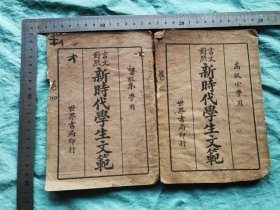 言文對照
新時代學生文範
學用
世界書局印行
言文對照
新時代學生文範
高級小學用
世界書局印行